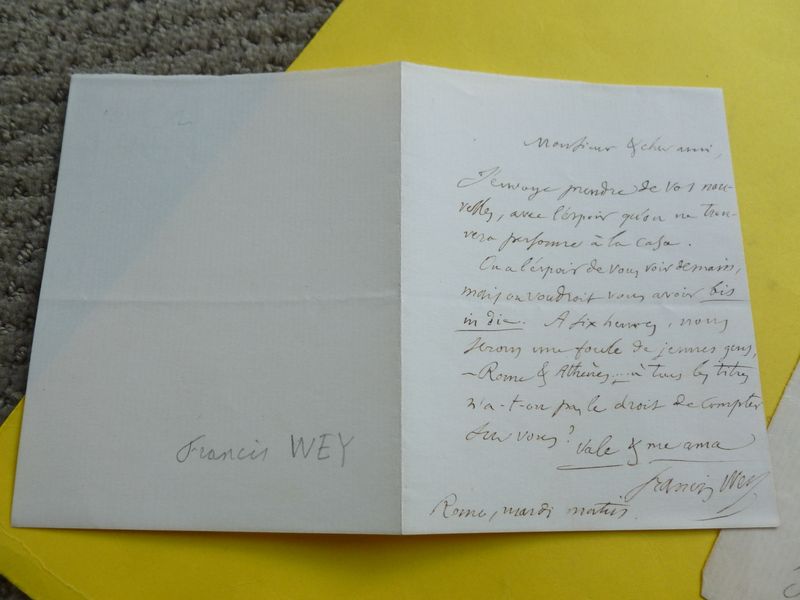 Monsieur & cher ami,
J'envoye prendre de vos nou-
velles, avec l'espoir qu'on ne trou-
vera personne à la casa.
On a l'espoir de vous voir demain,
mais on voudroit vous avoir bis
in die. A six heures, nous
serons une foule de jeunes gens,
- Rome & Athènes.... à tous les titres
n'a-t-on pas le droit de compter
sur vous?
Vale & me ama
Francis Wey
Rome, mardi matin.
Francis WEY